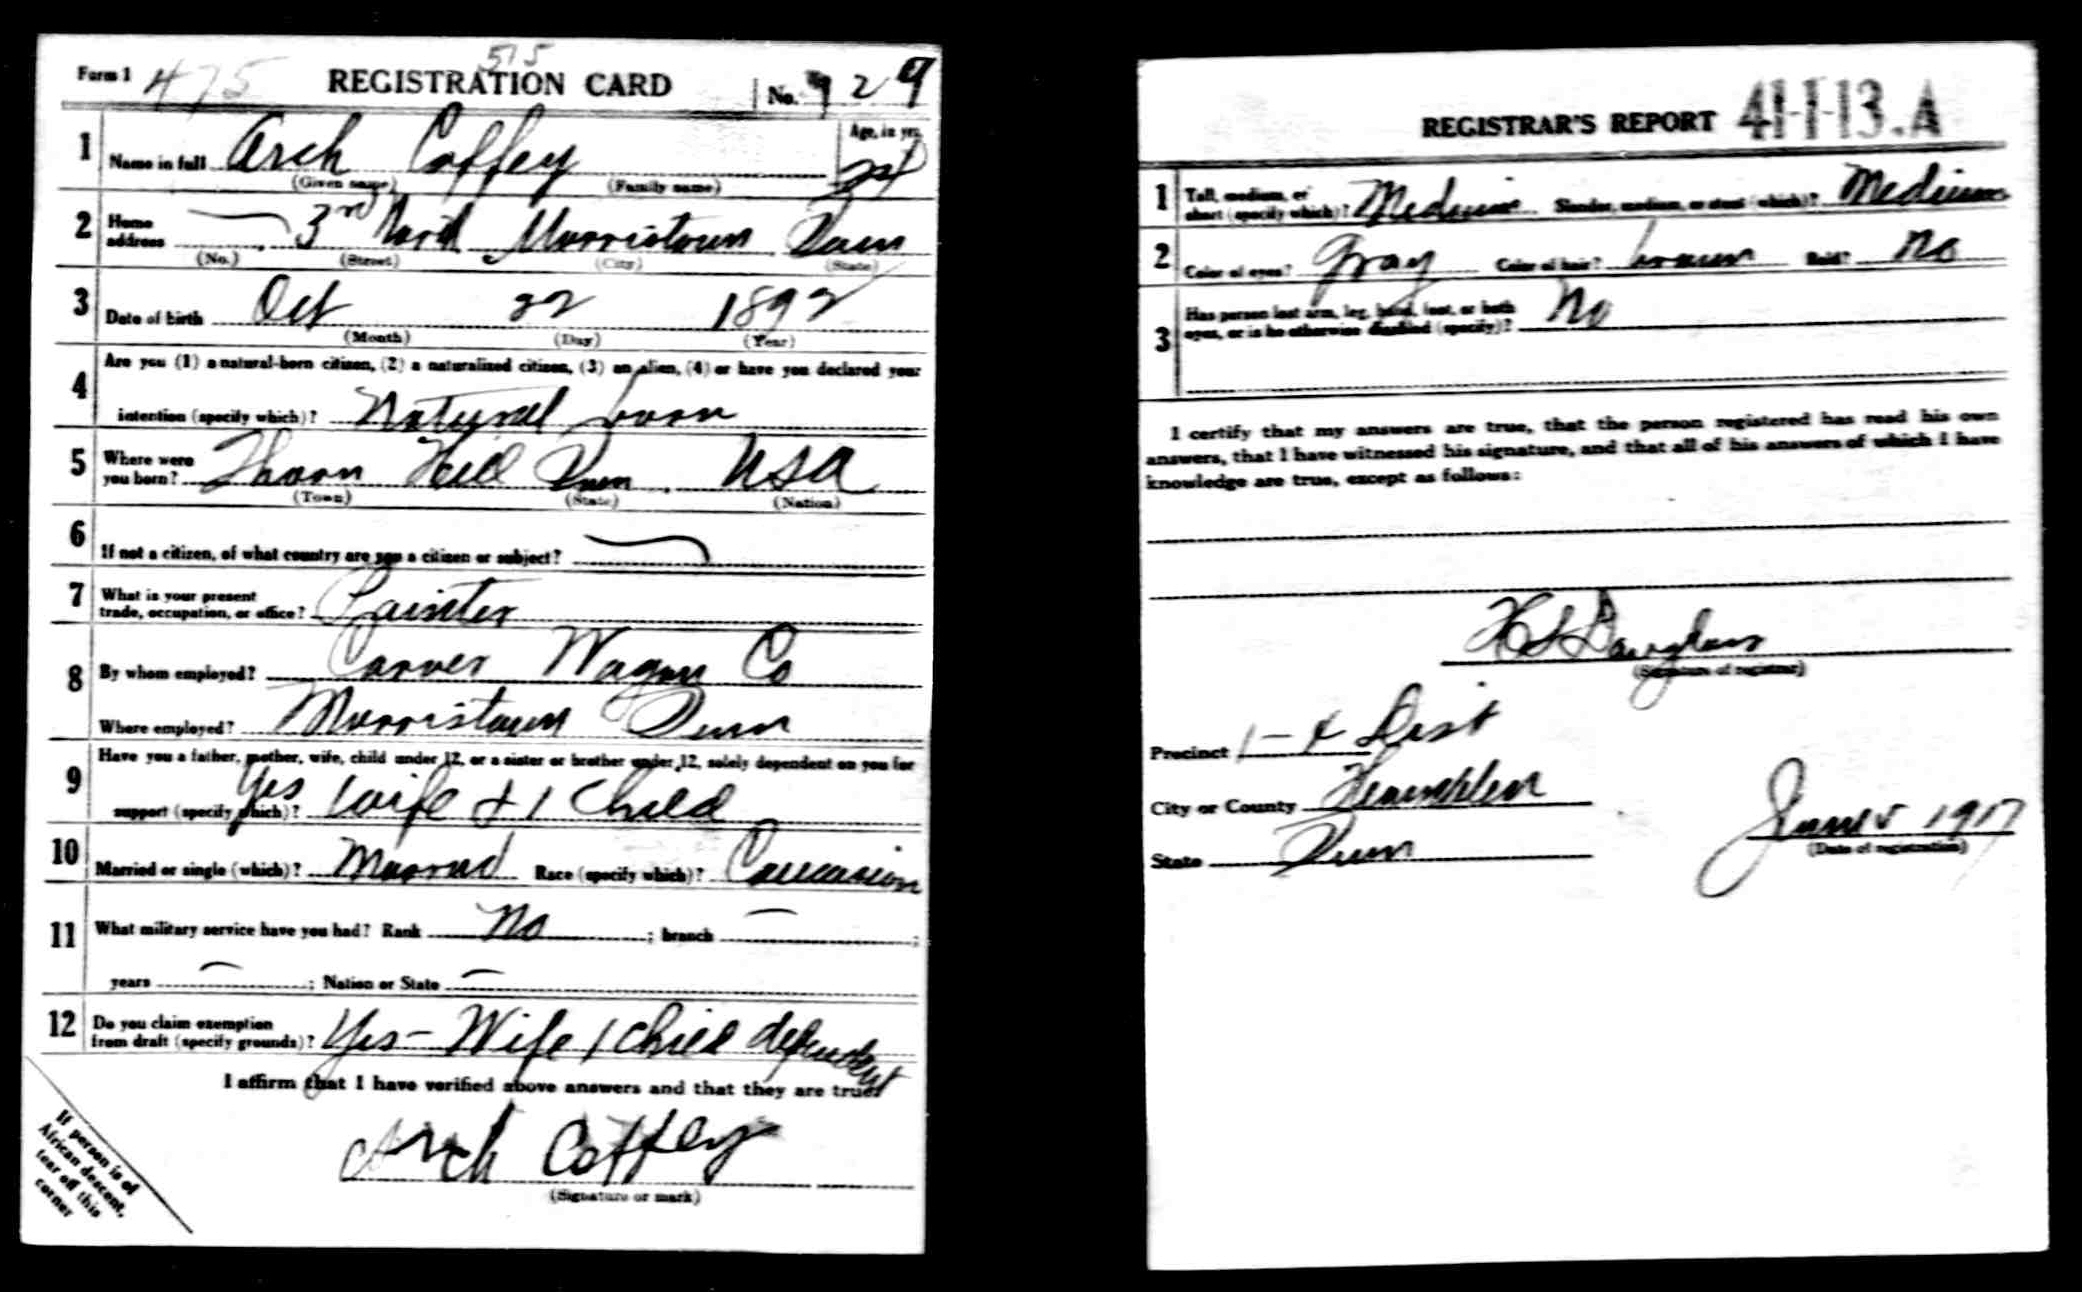 Form 1 475 515 REGISTRATION CARD No. 929
1 Name in full Arch Coffey Age, in yrs.
(Given name) (Family name)
2 Home address 3rd Ward Morristown Tenn
(No.) (Street) (City) (State)
3 Date of birth Oct 22 1892
(Month) (Day) (Year)
4 Are you (1) a natural-born citizen, (2) a naturalized citizen, (3) an alien, (4) or have you declared your
intention (specify which)? Natural born
5 Where were you born? Thorn Hill Tenn. USA
(Town) (State) (Nation)
6 If not a citizen, of what country are you a citizen or subject?
7 What is your present
trade, occupation, or office? Painter
8 By whom employed? Carver Wagon Co
Where employed? Morristown Tenn
9 Have you a father, mother, wife, child under 12, or a sister or brother under 12, solely dependent on you for
support (specify which)? Yes Wife & 1 Child
10 Married or single (which)? Married Race (specify which)? Caucasion
11 What military service have you had? Rank No ; branch ;
years ; Nation or State
12 Do you claim exemption
from draft (specify grounds)? Yes - Wife 1 Child dependent
I affirm that I have verified above answers and that they are true
Arch Coffey
(Signature or mark)
If person is of
African descent,
tear off this
corner
REGISTRAR'S REPORT 41-1-13.A
1 Tall, medium, or
short (specify which)? Medium Slender, medium, or stout (which)? Medium
2 Color of eyes? Gray Color of hair? brown Bald? No
3 Has person lost arm, leg, hand, foot, or both
eyes, or is he otherwise disabled (specify)? No
I certify that my answers are true, that the person registered has read his own
answers, that I have witnessed his signature, and that all of his answers of which I have
knowledge are true, except as follows:
(Signature of registrar)
Precinct 1 - 4 Dist
City or County Hamblen
State Tenn
June 5 1917
(Date of registration)